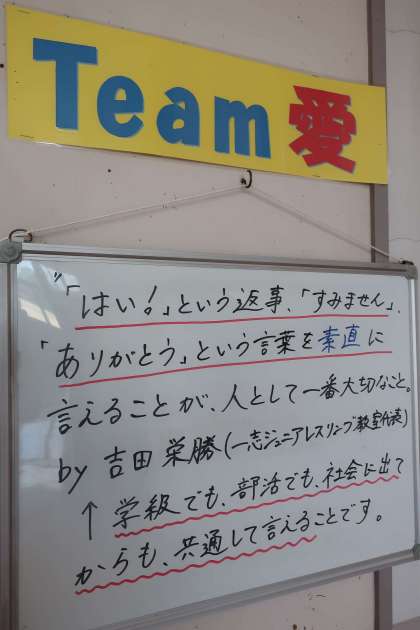 Team 愛
"「はい!」という返事、「すみません」、
「ありがとう」という言葉を素直に
言えることが、人として一番大切なこと。
by 吉田栄勝(一志ジュニアレスリング教室代表)
↑ 学級でも、部活でも、社会に出て
からも、共通して言えることです。